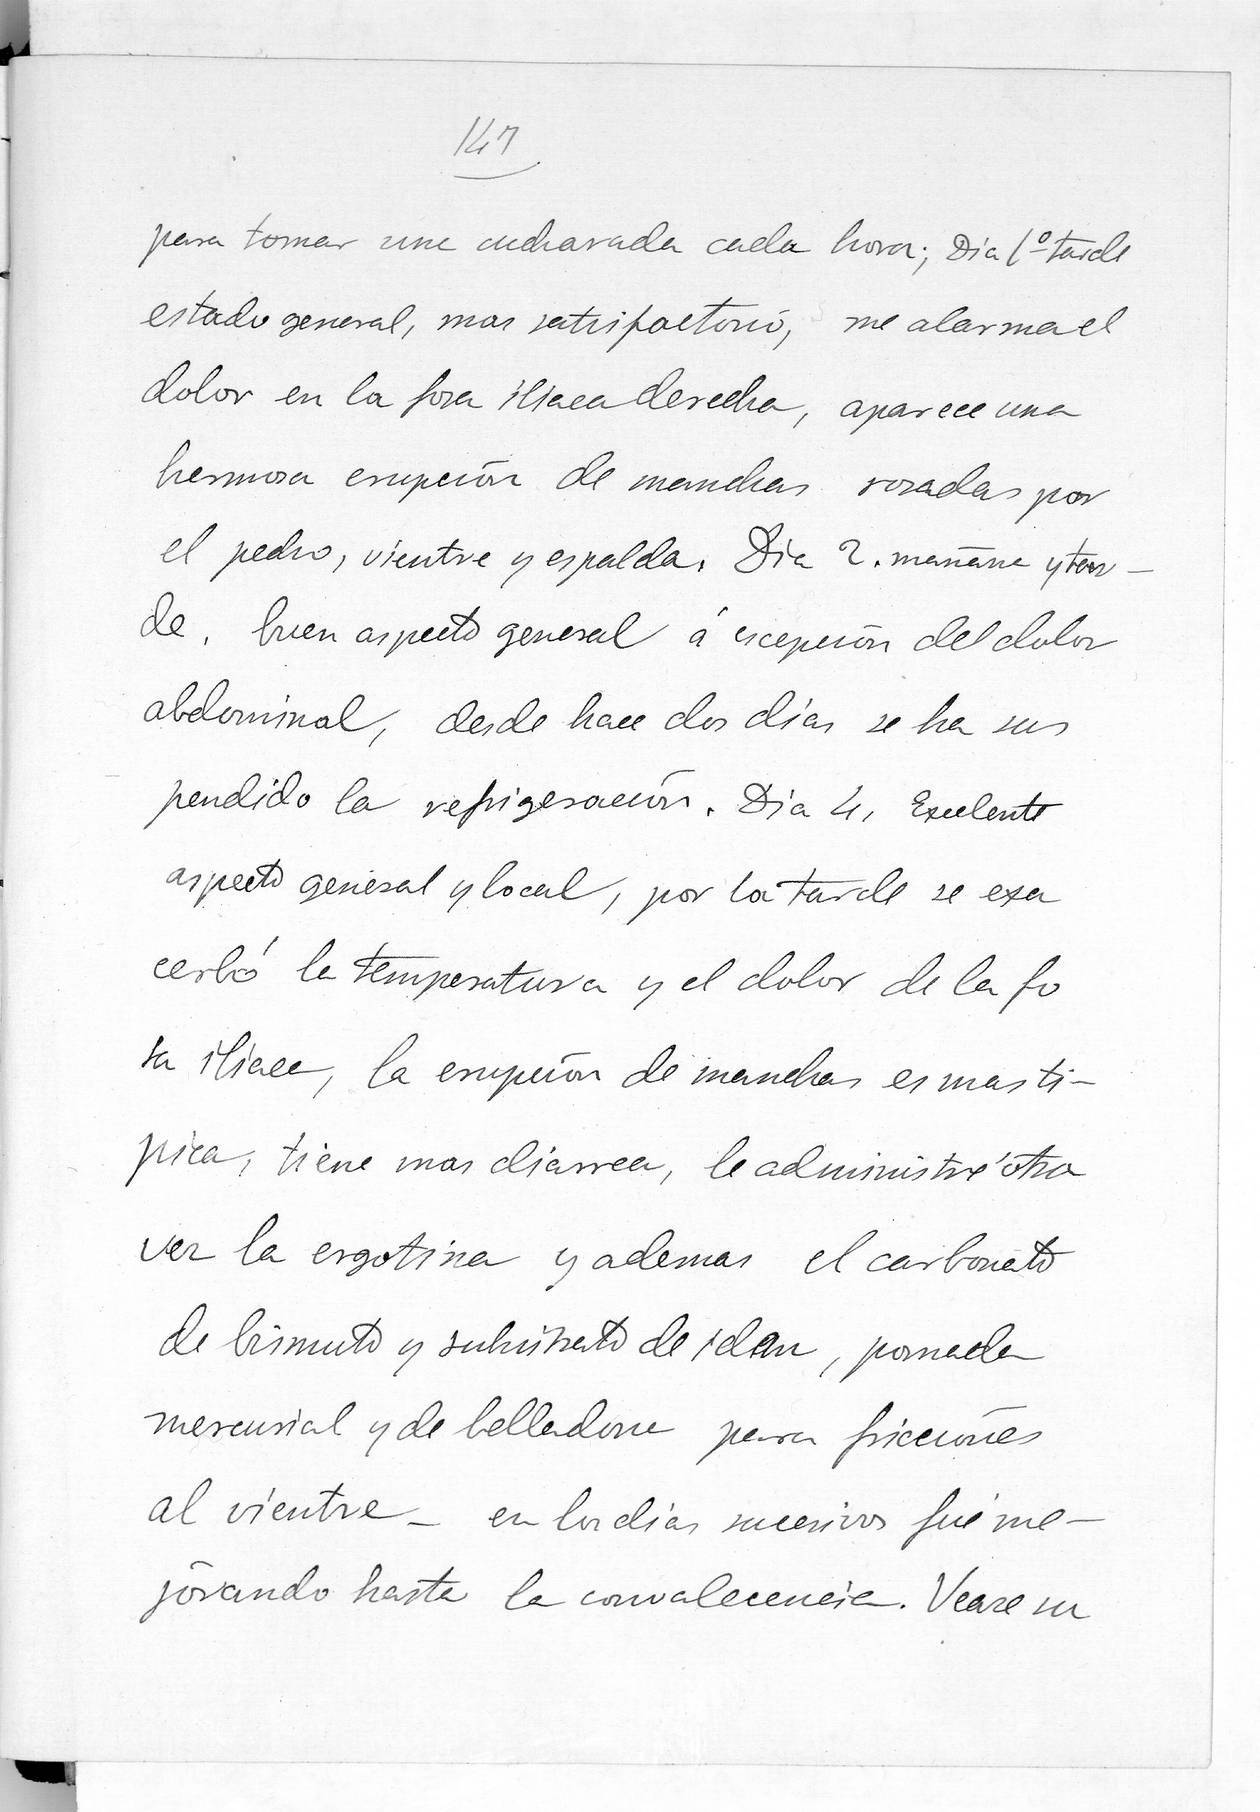 147
para tomar una cucharada cada hora; Dia 1º tarde
estado general, mas satisfactorio, me alarma el
dolor en la fosa iliaca derecha, aparece una
hermosa erupción de manchas rosadas por
el pecho, vientre y espalda. Dia 2. mañana y tar-
de. buen aspecto general á escepción del dolor
abdominal, desde hace dos dias se ha sus
pendido la refrigeración. Dia 4, Excelente
aspecto general y local, por la tarde se exa
cerbó la temperatura y el dolor de la fo
sa iliaca, la erupción de manchas es mas ti-
pica, tiene mas diarrea, le administré otra
vez la ergotina y ademas el carbonato
de bismuto y subnitrato de idem, pomada
mercurial y de belladona para fricciones
al vientre - en los dias sucesivos fué me-
jorando hasta la convalecencia. Vease su